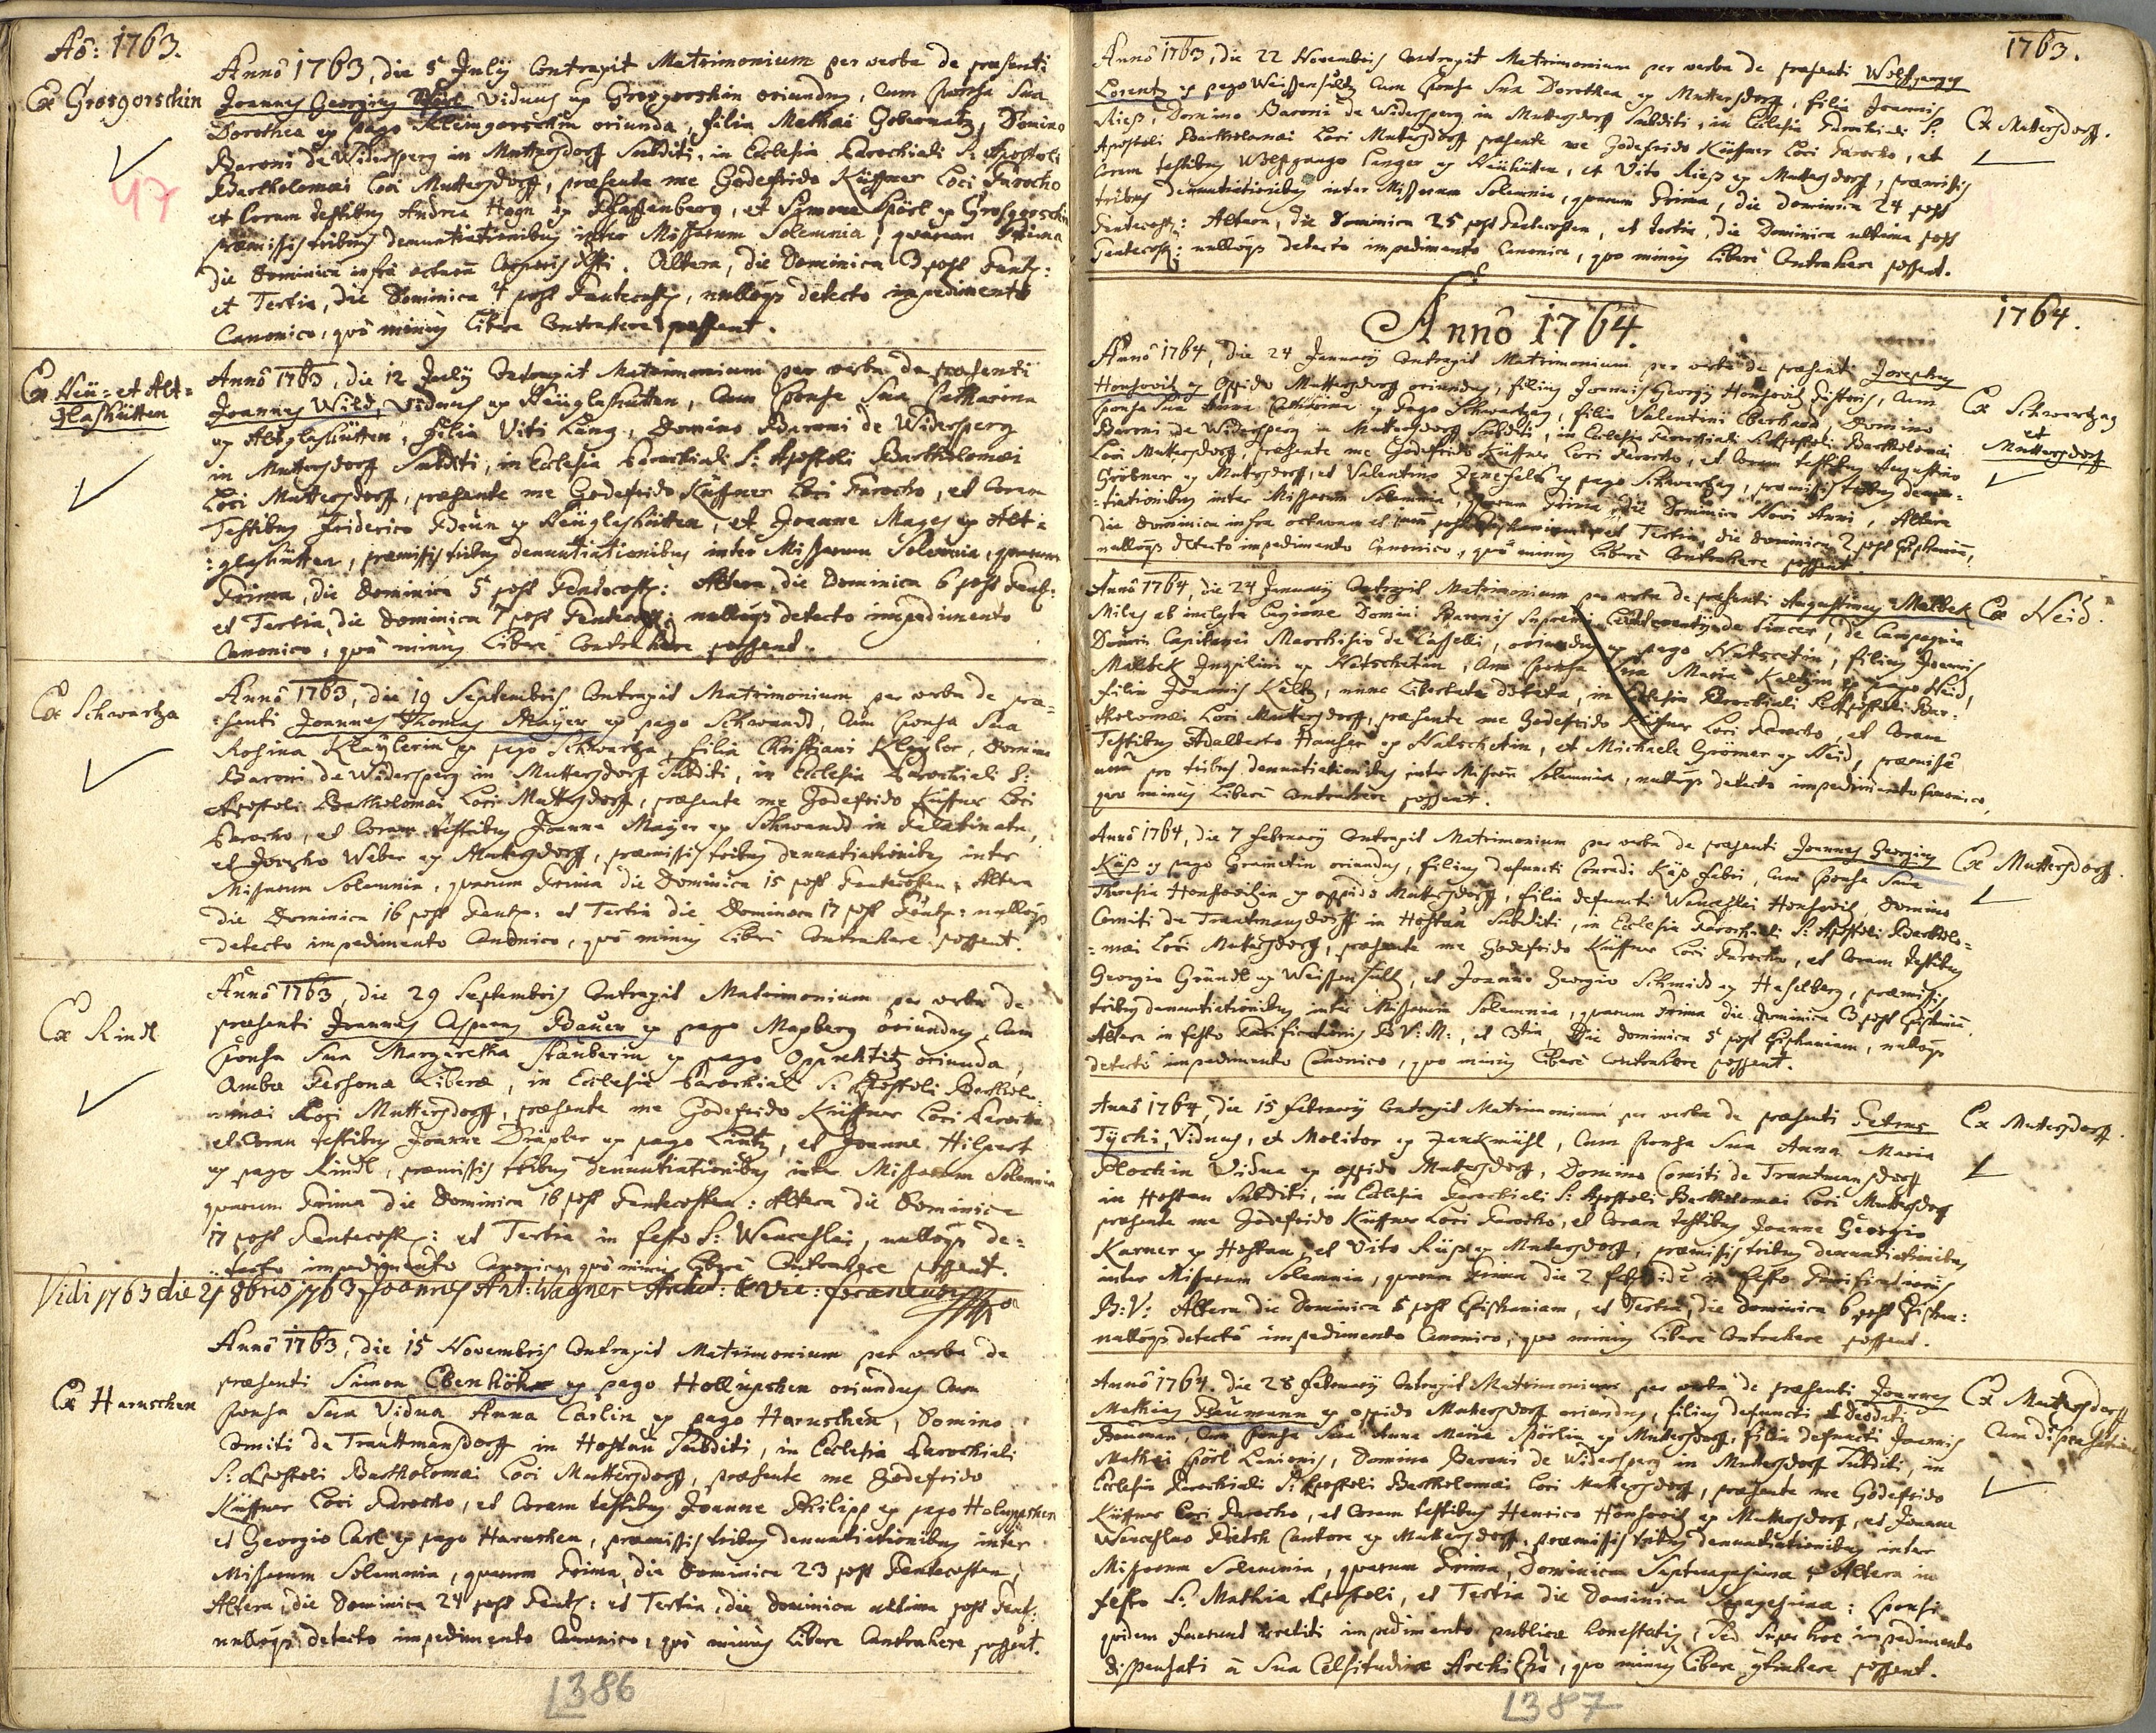 Aõ: 1763.
Anno 1763, die 5 July Contraxit Matrimonium per verba de præsenti
Ex Grosgorschin
Joannes Georgius Viduus ex Grosgorschin oriundus, Cum sponsa Sua
Dorothea ex pago Kleingorschin oriunda, filia Mathæi Domino
Baroni de Widersperg in Muttersdorff Subditi, in Ecclesia Parochiali S: Apostoli
47
Bartholomæi Loci Muttersdorff, præsente me Godefrido Küffner Loci Parocho
et Coram testibus Andrea Hagn ex et Simone Spörl ex Grosgorschin
præmissis tribus denuntiationibus inter Missarum Solemnia, quarum Prima
die Dominica infra octavam Corporis Xsti. Altera, die Dominica 3 post Pente:
et Tertia, die Dominica 4 post Pentecostes, nulloqs detecto impedimento
Canonico, quò minus Libere Contrahere possent.
Ex Neü= et Alt=
Glashütten
Anno 1763, die 12 July Contraxit Matrimonium per verba de præsenti
Joannes Wild, Viduus ex Neüglashütten, Cum sponsa Sua Catharina
ex Altglashütten, filia Viti Lang, Domino Baroni de Widersperg
in Muttersdorff Subditi, in Ecclesia Parochiali S: Apostoli Bartholomæi
Loci Muttersdorff, præsente me Godefrido Küffner Loci Parocho, et Coram
Testibus Friderico Braun ex Neüglashütten, et Joanne Mages ex Alt=
:glashütten, præmissis tribus denuntiationibus inter Missarum Solemnia, quarum
Prima, die Dominica 5 post Pentecost: Altera, die Dominica 6 post Pent:
et Tertia, die Dominica 7 post Pentecost: nulloqs detecto impedimento
Canonico, quò minus Libere Contrahere possent.
Ex Schwartza
Anno 1763, die 19 Septembris Contraxit Matrimonium per verba de præ=
:senti Joannes Thomas Mayer ex pago Schwandt, Cum sponsa Sua
Rosina Klaylerin ex pago Schwartza, filia Christiani Klayler, Domino
Baroni de Widersperg in Muttersdorff Subditi, in Ecclesia Parochiali S:
Apostoli Bartholomæi Loci Muttersdorff, præsente me Godefrido Küffner Loci
Parocho, et Coram testibus Joanne Mayer ex Schwandt in Palatinatu,
et Josepho Weber ex Muttersdorff, præmissis tribus denuntiationibus inter
Missarum Solemnia, quarum Prima die Dominica 15 post Pentecosten, Altera
die Dominica 16 post Pent: et Tertia die Dominica 17 post Pent: nulloqs
detecto impedimento Canonico, quò minus Liberè Contrahere possent.
Ex Rindl
Anno 1763, die 29 Septembris Contraxit Matrimonium per verba de
præsenti Joannes Casparus Bauer ex pago Maxberg oriundus, Cum
sponsa Sua Margaretha Stauberin ex pago oriunda,
ambæ Personæ Liberæ, in Ecclesia Parochiali S: Apostoli Bartholo=
:mæi Loci Muttersdorff, præsente me Godefrido Küffner Loci Parocho
et Coram testibus Joanne ex pago et Joanne Hilpert
ex pago Rindl, præmissis tribus denuntiationibus inter Missarum Solemnia
quarum Prima die Dominica 16 post Pentecosten: Altera die Dominica
17 post Pentecost: et Tertia in festo S: Wenceslai, nulloqs de=
:tecto impedimento Canonico, quò minus Liberè Contrahere possent.
Vidi 1763 die 21 8bris 1763 Joannes Ant: Wagner et Vic: foraneus
Ex Haruschen
Anno 1763, die 15 Novembris Contraxit Matrimonium per verba de
præsenti Simon Ebenhöh ex pago Hollupschen oriundus Cum
sponsa Sua Vidua Anna Carlin ex pago Haruschen, Domino
Comiti de Trauttmansdorff in Hostau Subditi, in Ecclesia Parochiali
S: Apostoli Bartholomæi Loci Muttersdorff, præsente me Godefrido
Küffner Loci Parocho, et Coram testibus Joanne Philipp ex pago Holupschen
et Georgio Carl ex pago Haruschen, præmissis tribus denuntiationibus inter
Missarum Solemnia, quarum Prima, die Dominica 23 post Pentecosten,
Altera, die Dominica 24 post Pent: et Tertia, die Dominica ultima post Pent:
nulloqs detecto impedimento Canonico, quò minus Libere Contrahere possent.
386
1763.
Anno 1763, die 22 Novembris Contraxit Matrimonium per verba de præsenti Wolffgangus
Lorentz ex pago Weissensultz Cum sponsa Sua Dorothea ex Muttersdorff, filia Joannis
Ex Muttersdorff.
Riess, Domino Baroni de Widersperg in Muttersdorff Subditi, in Ecclesia Parochiali S:
Apostoli Bartholomæi Loci Muttersdorff præsente me Godefrido Küffner Loci Parocho, et
Coram testibus Wolffgango Langer ex Neühütten, et Vito Riess ex Muttersdorff, præmissis
tribus denuntiationibus inter Missarum Solemnia, quarum Prima, die Dominica 24 post
Pentecost: Altera, die Dominica 25 post Pentecosten, et tertia, die Dominica ultima post
Pentecost: nulloqs detecto impedimento Canonico, quo minus Liberè Contrahere possent.
Anno 1764.
1764.
Anno 1764, die 24 January Contraxit Matrimonium per verba de præsenti Josephus
Honsovitz ex Oppido Muttersdorff oriundus, filius Joannis Georgy Honsovitz Pistoris, Cum
Ex Schwartzag
et
Muttersdorff
sponsa Sua Anna Catharina ex Pago Schwartzag, filia Valentini Eberhard, Domino
Baroni de Widersperg in Muttersdorff Subditi, in Ecclesia Parochiali S. Apostoli Bartholomæi
Loci Muttersdorff, præsente me Godefrido Küffner Loci Parocho, et Coram testibus Augustino
Gröbner ex Muttersdorff, et Valentino ex pago Schwartzag, præmissis tribus denun=
:tiationibus inter Missarum Solemnia, quarum Prima, die Dominica Novi Anni, Altera
die Dominica infra octavam et post Epiphaniam et Tertia, die Dominica 2 post Epiphaniam,
nulloqs detecto impedimento Canonico, quò minus Liberè Contrahere possent.
Anno 1764, die 24 January Contraxit Matrimonium per verba de præsenti Augustinus Malbek
Ex Neid.
Miles ab inclyta Legione Domini Baronis Supremi de Sincer, de Campagnia
Domini Capitanei Marchisio de Casselli, oriundus ex pago Natscetin, filius Joannis
Malbek Inquilini ex Natschetin, Cum sponsa Sua Maria Keltzin ex pago Neid,
filia Joannis Keltz, nunc Libertate donata, in Ecclesia Parochiali S. Apostoli Bar=
:tholomæi Loci Muttersdorff, præsente me Godefrido Küffner Loci Parocho, et Coram
Testibus Adalberto Hauser ex Natschetin, et Michaele Grömer ex Neid, præmissâ
unâ pro tribus denuntiationibus inter Missarum Solemnia, nulloqs detecto impedimento Canonico,
quo minus Liberè Contrahere possent.
Anno 1764, die 7 February Contraxit Matrimonium per verba de præsenti Joannes Georgius
Ex Muttersdorff.
Käss ex pago Grametin oriundus, filius defuncti Conradi Käss fabri, Cum sponsa Sua
Theresia Honsovitzin ex oppido Muttersdorff, filia defuncti Wenceslai Honsovitz, Domino
Comiti de Trautmansdorff in Hostau Subditi, in Ecclesia Parochiali S: Apostoli Bartholo=
:mæi Loci Muttersdorff, præsente me Godefrido Küffner Loci Parocho, et Coram testibus
Georgio Gründl ex Weissensultz, et Joanne Georgio Schmidt ex Haselberg, præmissis
tribus denuntiationibus inter Missarum Solemnia, quarum Prima die Dominica 3 post Epiphaniam
Altera in festo Purificationis B: V: M:, et 3tia, Die Dominica 5 post Epiphaniam, nulloqs
detecto impedimento Canonico, quo minus Liberè Contrahere possent.
Anno 1764, die 15 February Contraxit Matrimonium per verba de præsenti Petrus
Ex Muttersdorff.
Tychi, Viduus, et Molitor ex Zenkmühl, Cum sponsa Sua Anna Maria
Plochin Vidua ex oppido Muttersdorff, Domino Comiti de Trautmansdorff
in Hostau Subditi, in Ecclesia Parochiali S: Apostoli Bartholomæi Loci Muttersdorff
præsente me Godefrido Küffner Loci Parocho, et Coram testibus Joanne Georgio
Karner ex Hostau, et Vito Riess ex Muttersdorff, præmissis tribus denuntiationibus
inter Missarum Solemnia, quarum Prima die 2 Feb: in festo Purificationis
B: V: Altera die Dominica 5 post Epiphaniam, et Tertia, die Dominica 6 post Epipha:
nulloqs detecto impedimento Canonico, quo minus Liberè Contrahere possent.
Anno 1764. die 28 February Contraxit Matrimonium per verba de præsenti Joannes
Ex Muttersdorff
Cum dispensatione
Mathias Naumann ex oppido Muttersdorff oriundus, filius defuncti
Cum sponsa Sua Anna Maria Spörlin ex Muttersdorff, filia defuncti Joannis
Mathæi Spörl Lanionis, Domino Baroni de Widersperg in Muttersdorff Subditi, in
Ecclesia Parochiali S: Apostoli Bartholomæi Loci Muttersdorff, præsente me Godefrido
Küffner Loci Parocho, et Coram testibus Henrico Honsovitz ex Muttersdorff, et Joanne
Wenceslao Pietsch Cantore ex Muttersdorff, præmissis tribus denuntiationibus inter
Missarum Solemnia, quarum Prima, Dominica Septuagesima, Altera in
festo S: Mathiæ Apostoli, et Tertia die Dominica Sexagesima: sponsi
quidem fuerunt irretiti impedimento publicæ honestatis, sed super hoc impedimento
dispensati à Sua Celsitudine Archi Epo, quo minus Libere contrahere possent.
387